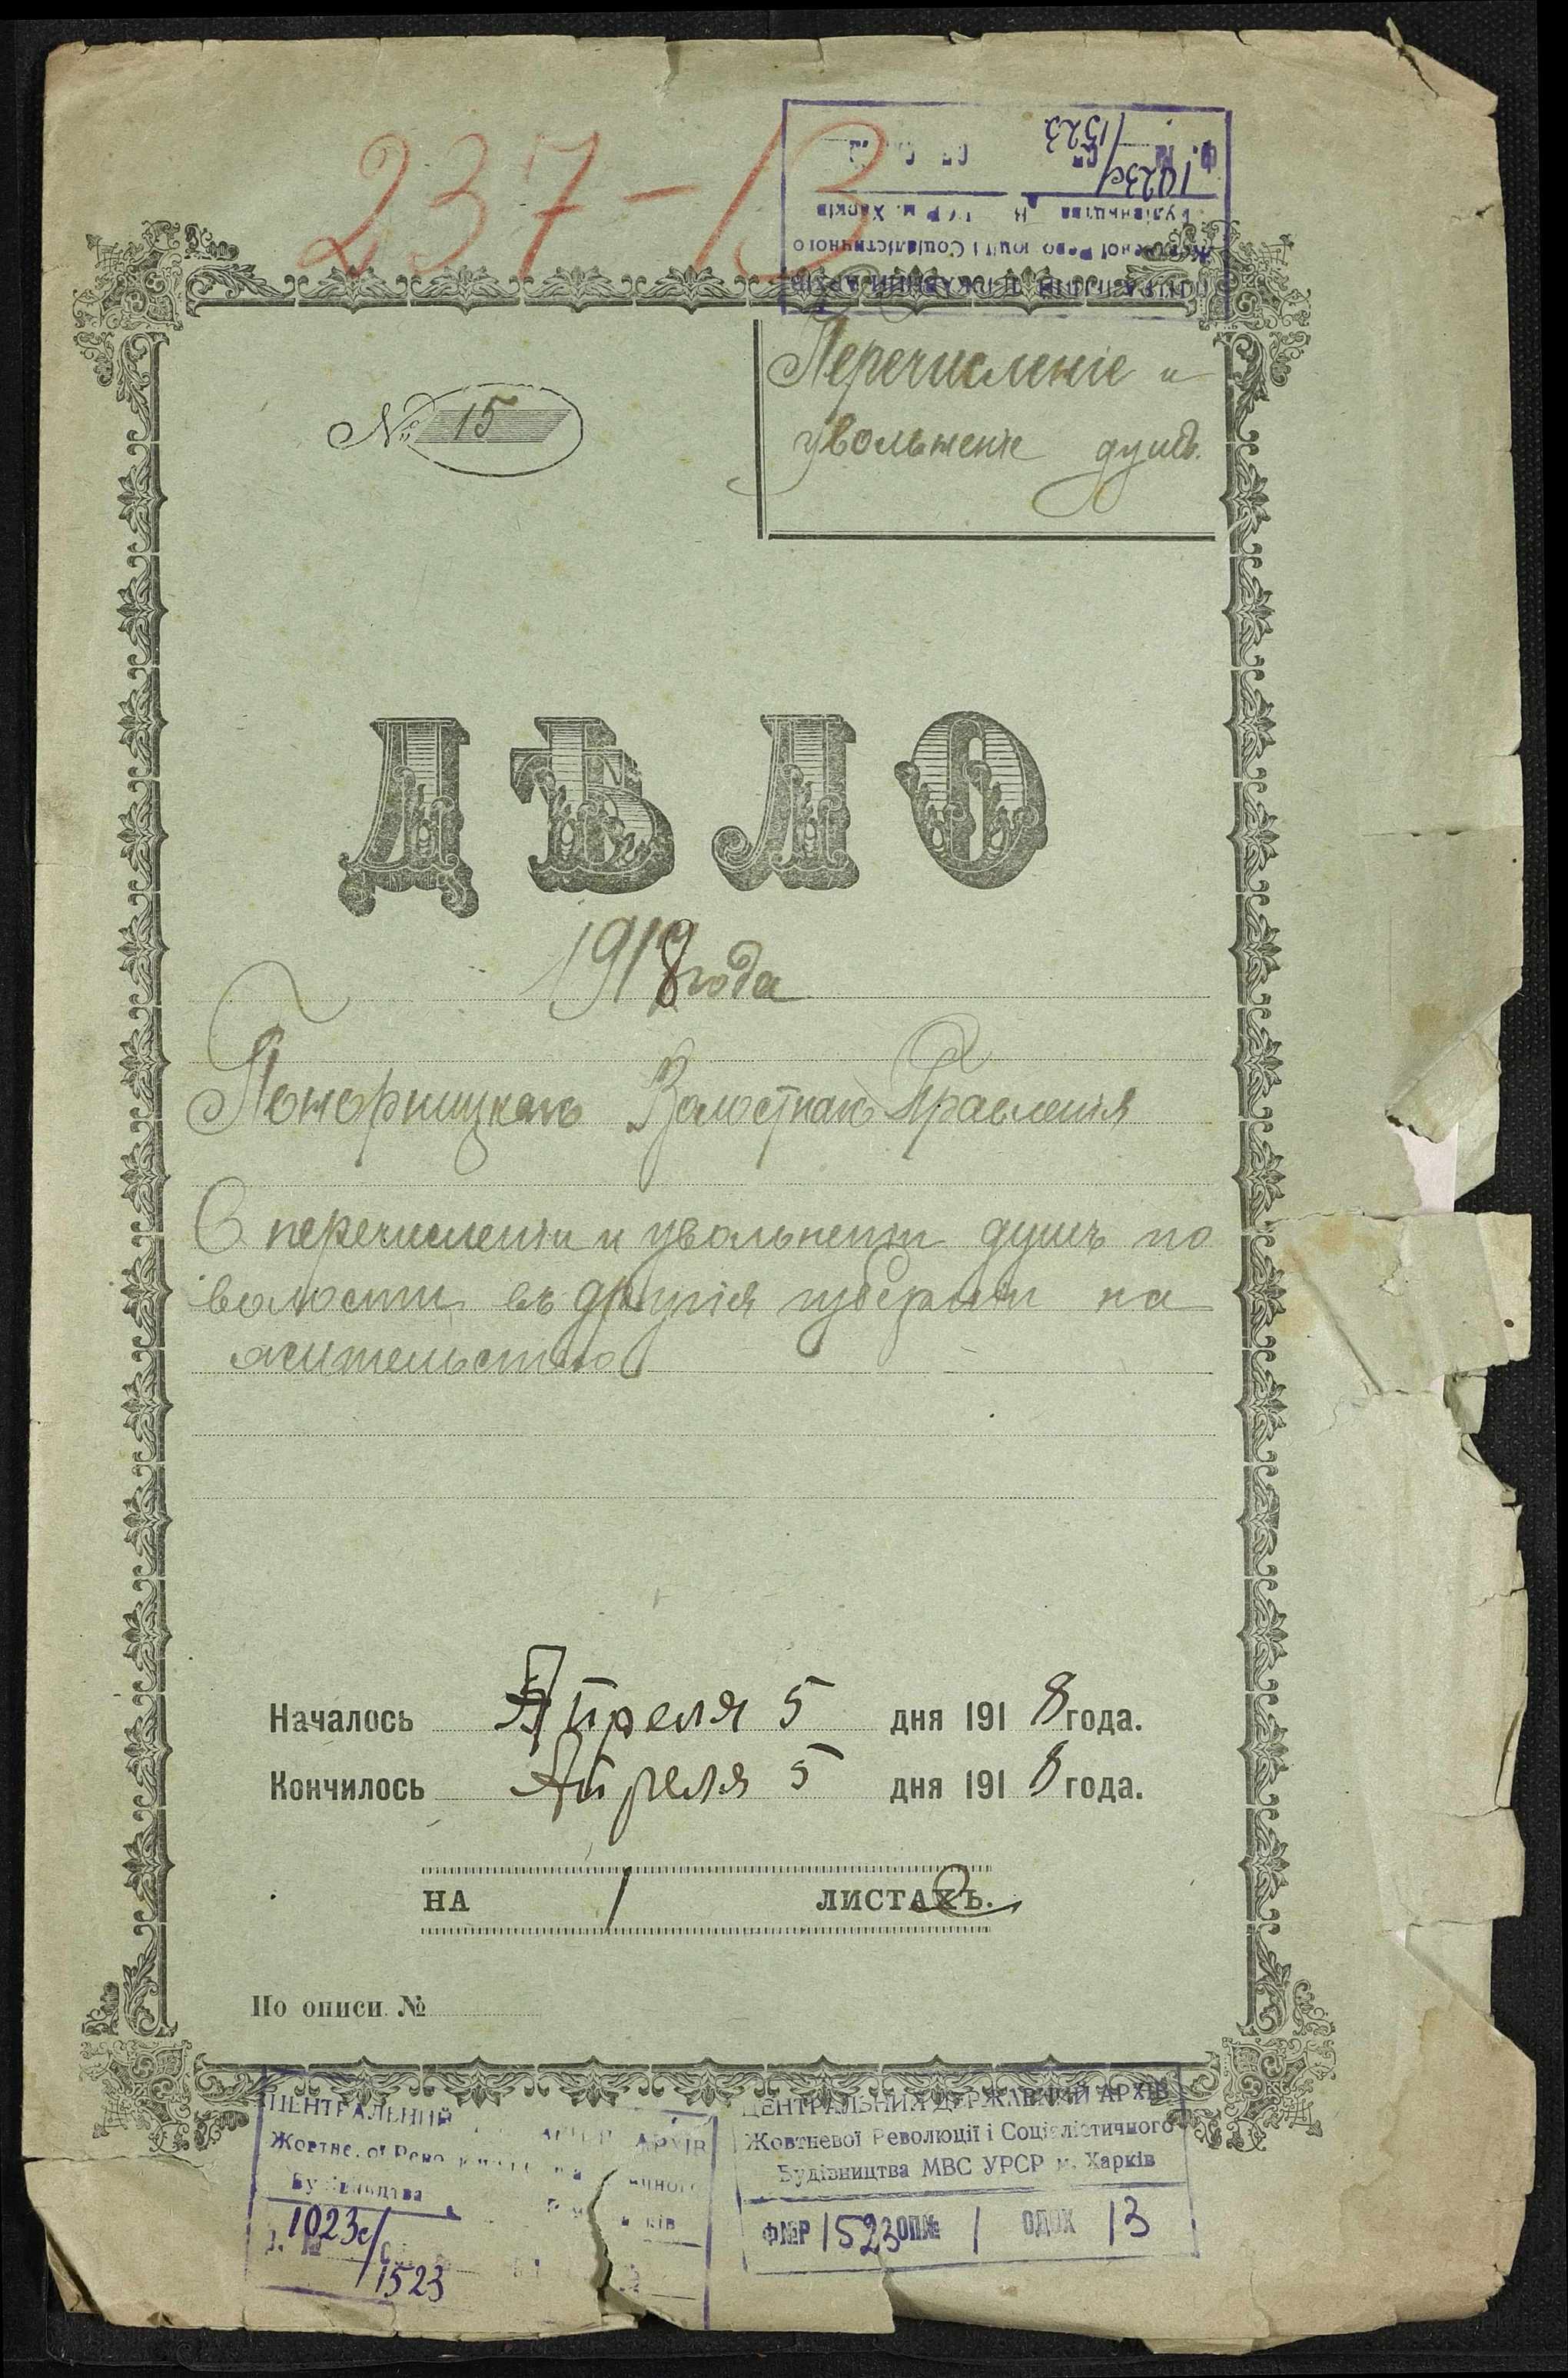 237-13
1023с/1523
Жовтневої Революції і Соціалістичного
Будівництва м. Харків
ЦЕНТРАЛЬНИЙ ДЕРЖАВНИЙ АРХІВ
Перечисленіе и
увольненіе душъ.
№ 15
ДѢЛО
1918 года
Понорницкаго Волостнаго Правленія
О перечисленіи и увольненіи душъ по
волости въ другія губерніи на
жительство
Началось Апреля 5 дня 1918 года.
Кончилось Апреля 5 дня 1918 года.
НА 1 ЛИСТАХЪ.
По описи №
ЦЕНТРАЛЬНИЙ АРХІВ
Жовтневої
Будівництва
1023с/1523
ЦЕНТРАЛЬНИЙ ДЕРЖАВНИЙ АРХІВ
Жовтневої Революції і Соціалістичного
Будівництва МВС УРСР м. Харків
Ф№Р 1523 ОП№ 1 ОД.ЗХ 13